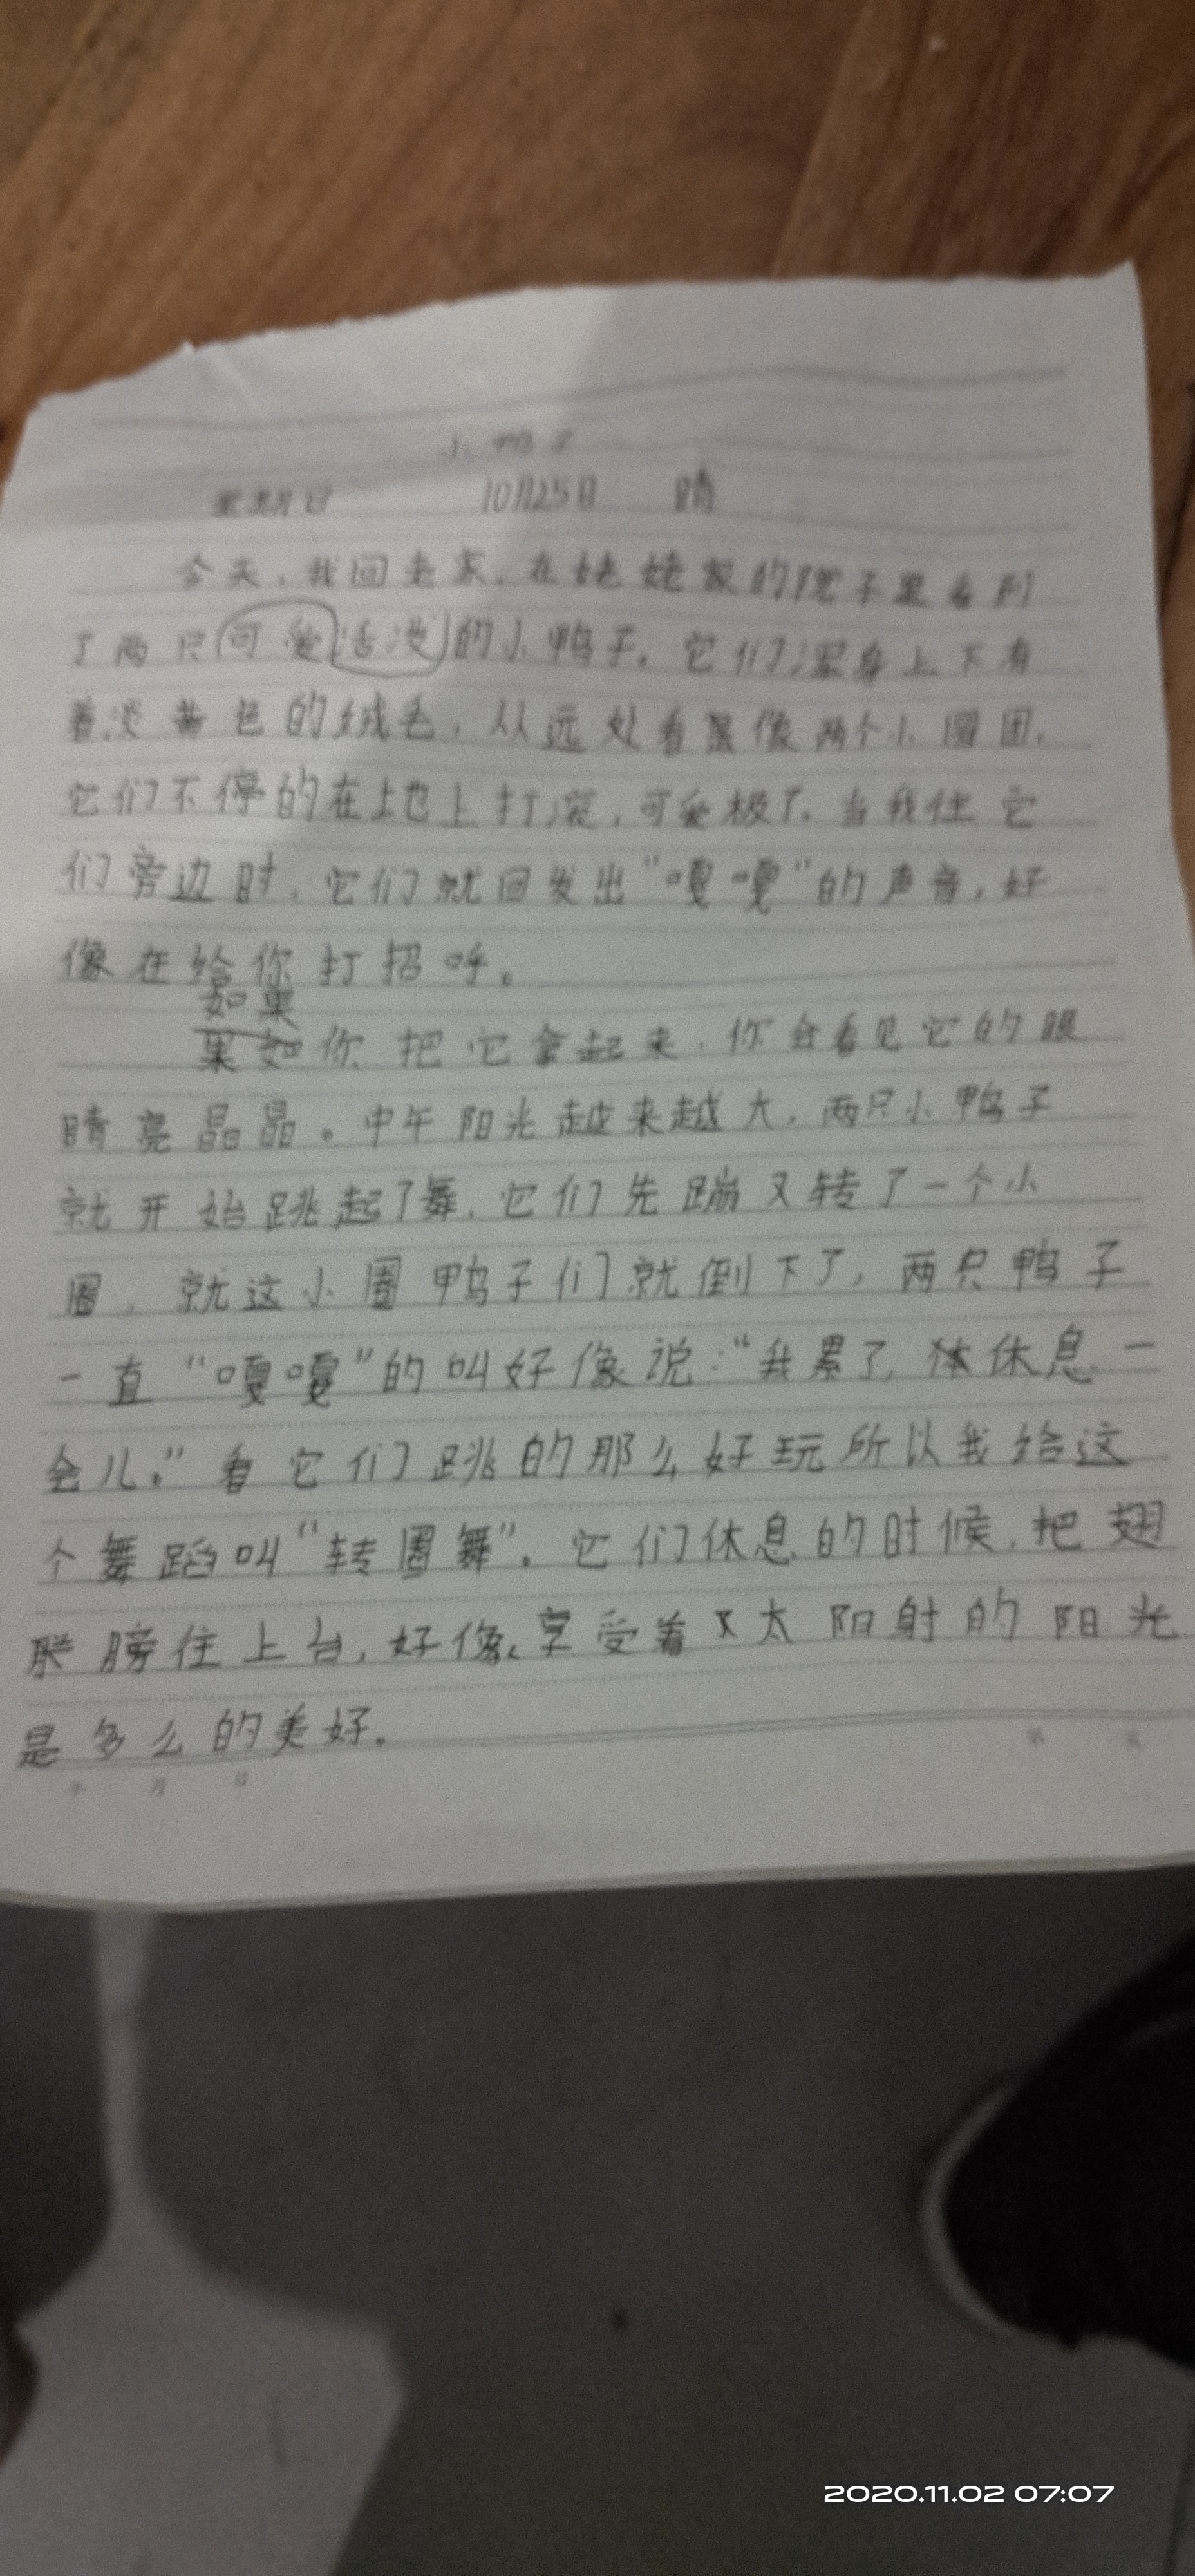 小鸭子
星期日 10月25日 晴
今天,我回老家,在姥姥家的院子里看到
了两只可爱活泼的小鸭子。它们浑身上下有
着淡黄色的绒毛,从远处看像两个小圆团,
它们不停的在地上打滚,可爱极了。当我往它
们旁边时,它们就回发出“嘎嘎”的声音,好
像在给你打招呼。
如果
果如你把它拿起来,你会看见它的眼
睛亮晶晶。中午阳光越来越大,两只小鸭子
就开始跳起了舞,它们先蹦又转了一个小
圈,就这小圈鸭子们就倒下了,两只鸭子
一直“嘎嘎”的叫好像说:“我累了,休息一
会儿。”看它们跳的那么好玩所以我给这
个舞蹈叫“转圈舞”。它们休息的时候,把翅
膀往上台,好像享受着太阳射的阳光
是多么的美好。
年 月 日 第 页
2020.11.02 07:07